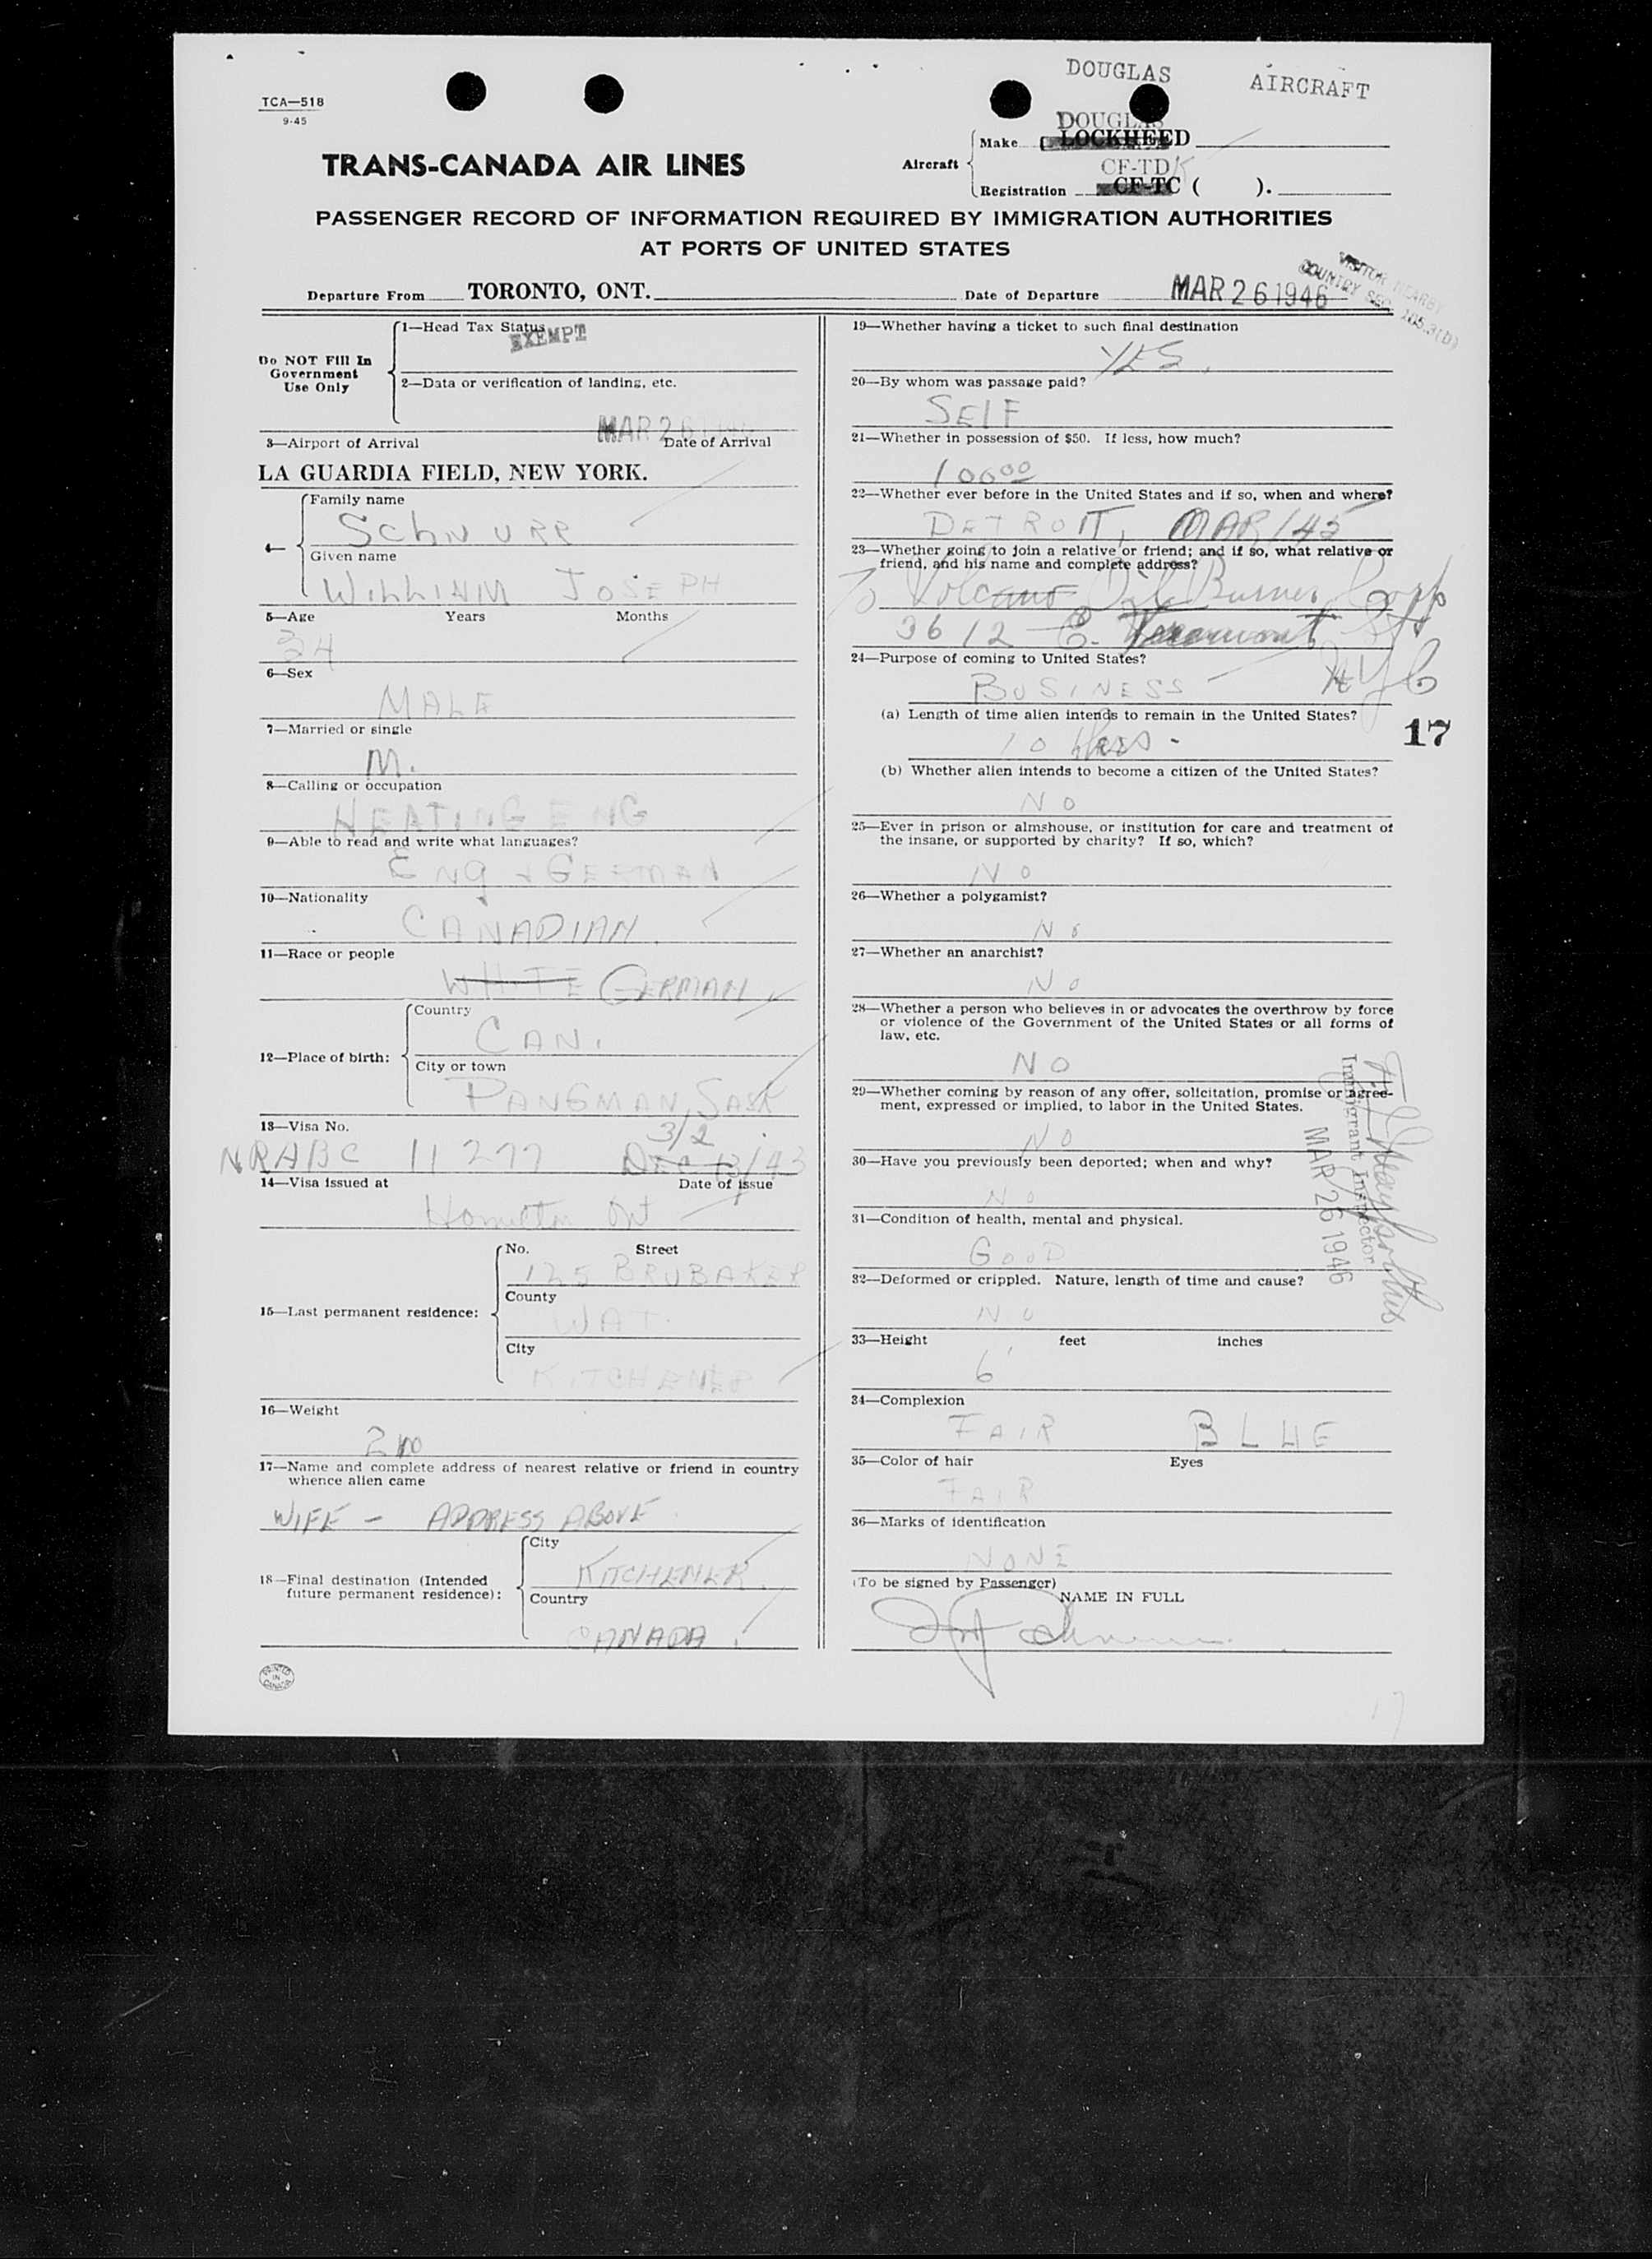 DOUGLAS AIRCRAFT
TCA—518
9-45
DOUGLAS
Make LOCKHEED
TRANS-CANADA AIR LINES
Aircraft
CF-TDK
Registration CF-TC ( ).
PASSENGER RECORD OF INFORMATION REQUIRED BY IMMIGRATION AUTHORITIES
AT PORTS OF UNITED STATES
VISITOR NEARBY
COUNTRY SEC. 105.3(D)
Departure From TORONTO, ONT. Date of Departure MAR 26 1946
Do NOT Fill In
Government
Use Only
1—Head Tax Status
EXEMPT
2—Data or verification of landing, etc.
MAR 26 1946
3—Airport of Arrival Date of Arrival
LA GUARDIA FIELD, NEW YORK.
4—
Family name
SChNURR
Given name
WILLIAM JOSEPH
5—Age Years Months
34
6—Sex
MALE
7—Married or single
M.
8—Calling or occupation
HEATING ENG
9—Able to read and write what languages?
ENG & GERMAN
10—Nationality
CANADIAN.
11—Race or people
WHITE GERMAN
12—Place of birth:
Country
CAN.
City or town
PANGMAN, SASK
13—Visa No.
3/2
NRABC 11277 DEC 13/43
14—Visa issued at Date of issue
Hamilton Ont
15—Last permanent residence:
No. Street
125 BRUBAKER
County
WAT.
City
KITCHENER
16—Weight
210
17—Name and complete address of nearest relative or friend in country
whence alien came
WIFE - ADDRESS ABOVE
18—Final destination (Intended
future permanent residence):
City
KITCHENER.
Country
CANADA.
PRINTED
IN
CANADA
19—Whether having a ticket to such final destination
YES.
20—By whom was passage paid?
SELF
21—Whether in possession of $50. If less, how much?
100 00
22—Whether ever before in the United States and if so, when and where?
DETROIT, MAR/45
23—Whether going to join a relative or friend; and if so, what relative or
friend, and his name and complete address?
To Volcano Oil Burner Corp
3612 E. Tremont
24—Purpose of coming to United States?
BUSINESS NYC
(a) Length of time alien intends to remain in the United States?
17
10 hrs -
(b) Whether alien intends to become a citizen of the United States?
NO
25—Ever in prison or almshouse, or institution for care and treatment of
the insane, or supported by charity? If so, which?
NO
26—Whether a polygamist?
NO
27—Whether an anarchist?
NO
28—Whether a person who believes in or advocates the overthrow by force
or violence of the Government of the United States or all forms of
law, etc.
NO
29—Whether coming by reason of any offer, solicitation, promise or agree-
ment, expressed or implied, to labor in the United States.
NO
Immigrant Inspector
MAR 26 1946
30—Have you previously been deported; when and why?
NO
31—Condition of health, mental and physical.
GOOD
32—Deformed or crippled. Nature, length of time and cause?
NO
33—Height feet inches
6'
34—Complexion
FAIR BLUE
35—Color of hair Eyes
FAIR
36—Marks of identification
NONE
(To be signed by Passenger)
NAME IN FULL
17